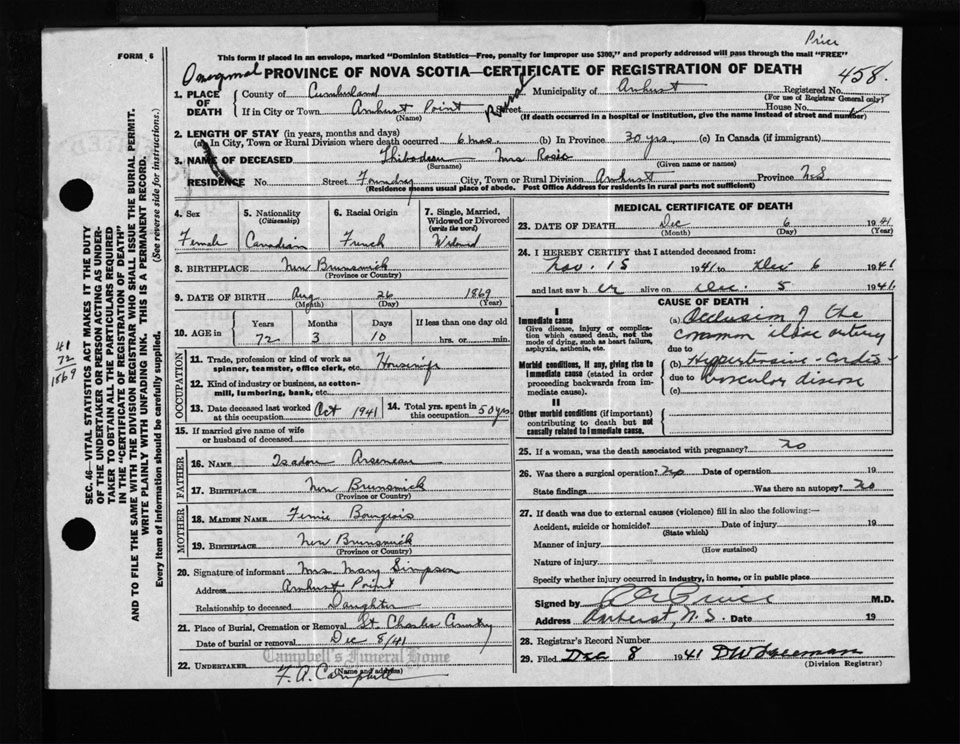 Price
FORM 6
This form if placed in an envelope, marked "Dominion Statistics—Free, penalty for improper use $300," and properly addressed will pass through the mail "FREE"
PROVINCE OF NOVA SCOTIA—CERTIFICATE OF REGISTRATION OF DEATH
458.
1. PLACE OF DEATH
County of Cumberland Municipality of Amherst Registered No.
(For use of Registrar General only)
If in City or Town Amherst Point Rural Street House No.
(Name) (If death occurred in a hospital or institution, give the name instead of street and number)
2. LENGTH OF STAY (in years, months and days)
(a) In City, Town or Rural Division where death occurred 6 mos. (b) In Province 30 yrs. (c) In Canada (if immigrant)
3. NAME OF DECEASED Thibodeau Mrs Rosie
(Surname) (Given name or names)
RESIDENCE No. Street Foundry City, Town or Rural Division Amherst Province N.S
(Residence means usual place of abode. Post Office Address for residents in rural parts not sufficient)
4. Sex Female
5. Nationality (Citizenship) Canadian
6. Racial Origin French
7. Single, Married, Widowed or Divorced (write the word) Widowed
8. BIRTHPLACE New Brunswick
(Province or Country)
9. DATE OF BIRTH Aug 26 1869
(Month) (Day) (Year)
10. AGE in Years Months Days If less than one day old
72 3 10 hrs. or min.
OCCUPATION
11. Trade, profession or kind of work as spinner, teamster, office clerk, etc. Housewife
12. Kind of industry or business, as cotton-mill, lumbering, bank, etc.
13. Date deceased last worked at this occupation Oct 1941
14. Total yrs. spent in this occupation 50 yrs
15. If married give name of wife or husband of deceased
FATHER
16. NAME Isadore Arseneau
17. BIRTHPLACE New Brunswick
(Province or Country)
MOTHER
18. MAIDEN NAME Bourgeois
19. BIRTHPLACE New Brunswick
(Province or Country)
20. Signature of informant Mrs. Mary Simpson
Address Amherst Point
Relationship to deceased Daughter
21. Place of Burial, Cremation or Removal St. Charles Cemetery
Date of burial or removal Dec 8/41
Campbell's Funeral Home
22. UNDERTAKER F. A. Campbell
(Name and address)
MEDICAL CERTIFICATE OF DEATH
23. DATE OF DEATH Dec 6 1941
(Month) (Day) (Year)
24. I HEREBY CERTIFY that I attended deceased from
Nov. 15 1941 to Dec 6 1941
and last saw her alive on Dec. 5 1941
CAUSE OF DEATH
I
Immediate cause
Give disease, injury or complication which caused death, not the mode of dying, such as heart failure, asphyxia, asthenia, etc.
(a) Occlusion of the
common iliac artery
due to
Morbid conditions, if any, giving rise to immediate cause (stated in order proceeding backwards from immediate cause).
(b) Hypertensive-Cardio-
due to vascular disease
(c)
II
Other morbid conditions (if important) contributing to death but not causally related to immediate cause.
25. If a woman, was the death associated with pregnancy? no
26. Was there a surgical operation? no Date of operation 19
State findings Was there an autopsy? no
27. If death was due to external causes (violence) fill in also the following:—
Accident, suicide or homicide? Date of injury 19
(State which)
Manner of injury
(How sustained)
Nature of injury
Specify whether injury occurred in industry, in home, or in public place
Signed by M.D.
Address Amherst, N.S. Date 19
28. Registrar's Record Number
29. Filed Dec 8 1941 D W Freeman
(Division Registrar)
SEC. 46—VITAL STATISTICS ACT MAKES IT THE DUTY
OF THE UNDERTAKER OR PERSON ACTING AS UNDER-
TAKER TO OBTAIN ALL THE PARTICULARS REQUIRED
IN THE "CERTIFICATE OF REGISTRATION OF DEATH"
AND TO FILE THE SAME WITH THE DIVISION REGISTRAR WHO SHALL ISSUE THE BURIAL PERMIT.
WRITE PLAINLY WITH UNFADING INK. THIS IS A PERMANENT RECORD.
Every item of information should be carefully supplied. (See reverse side for instructions.)
41
72
1869